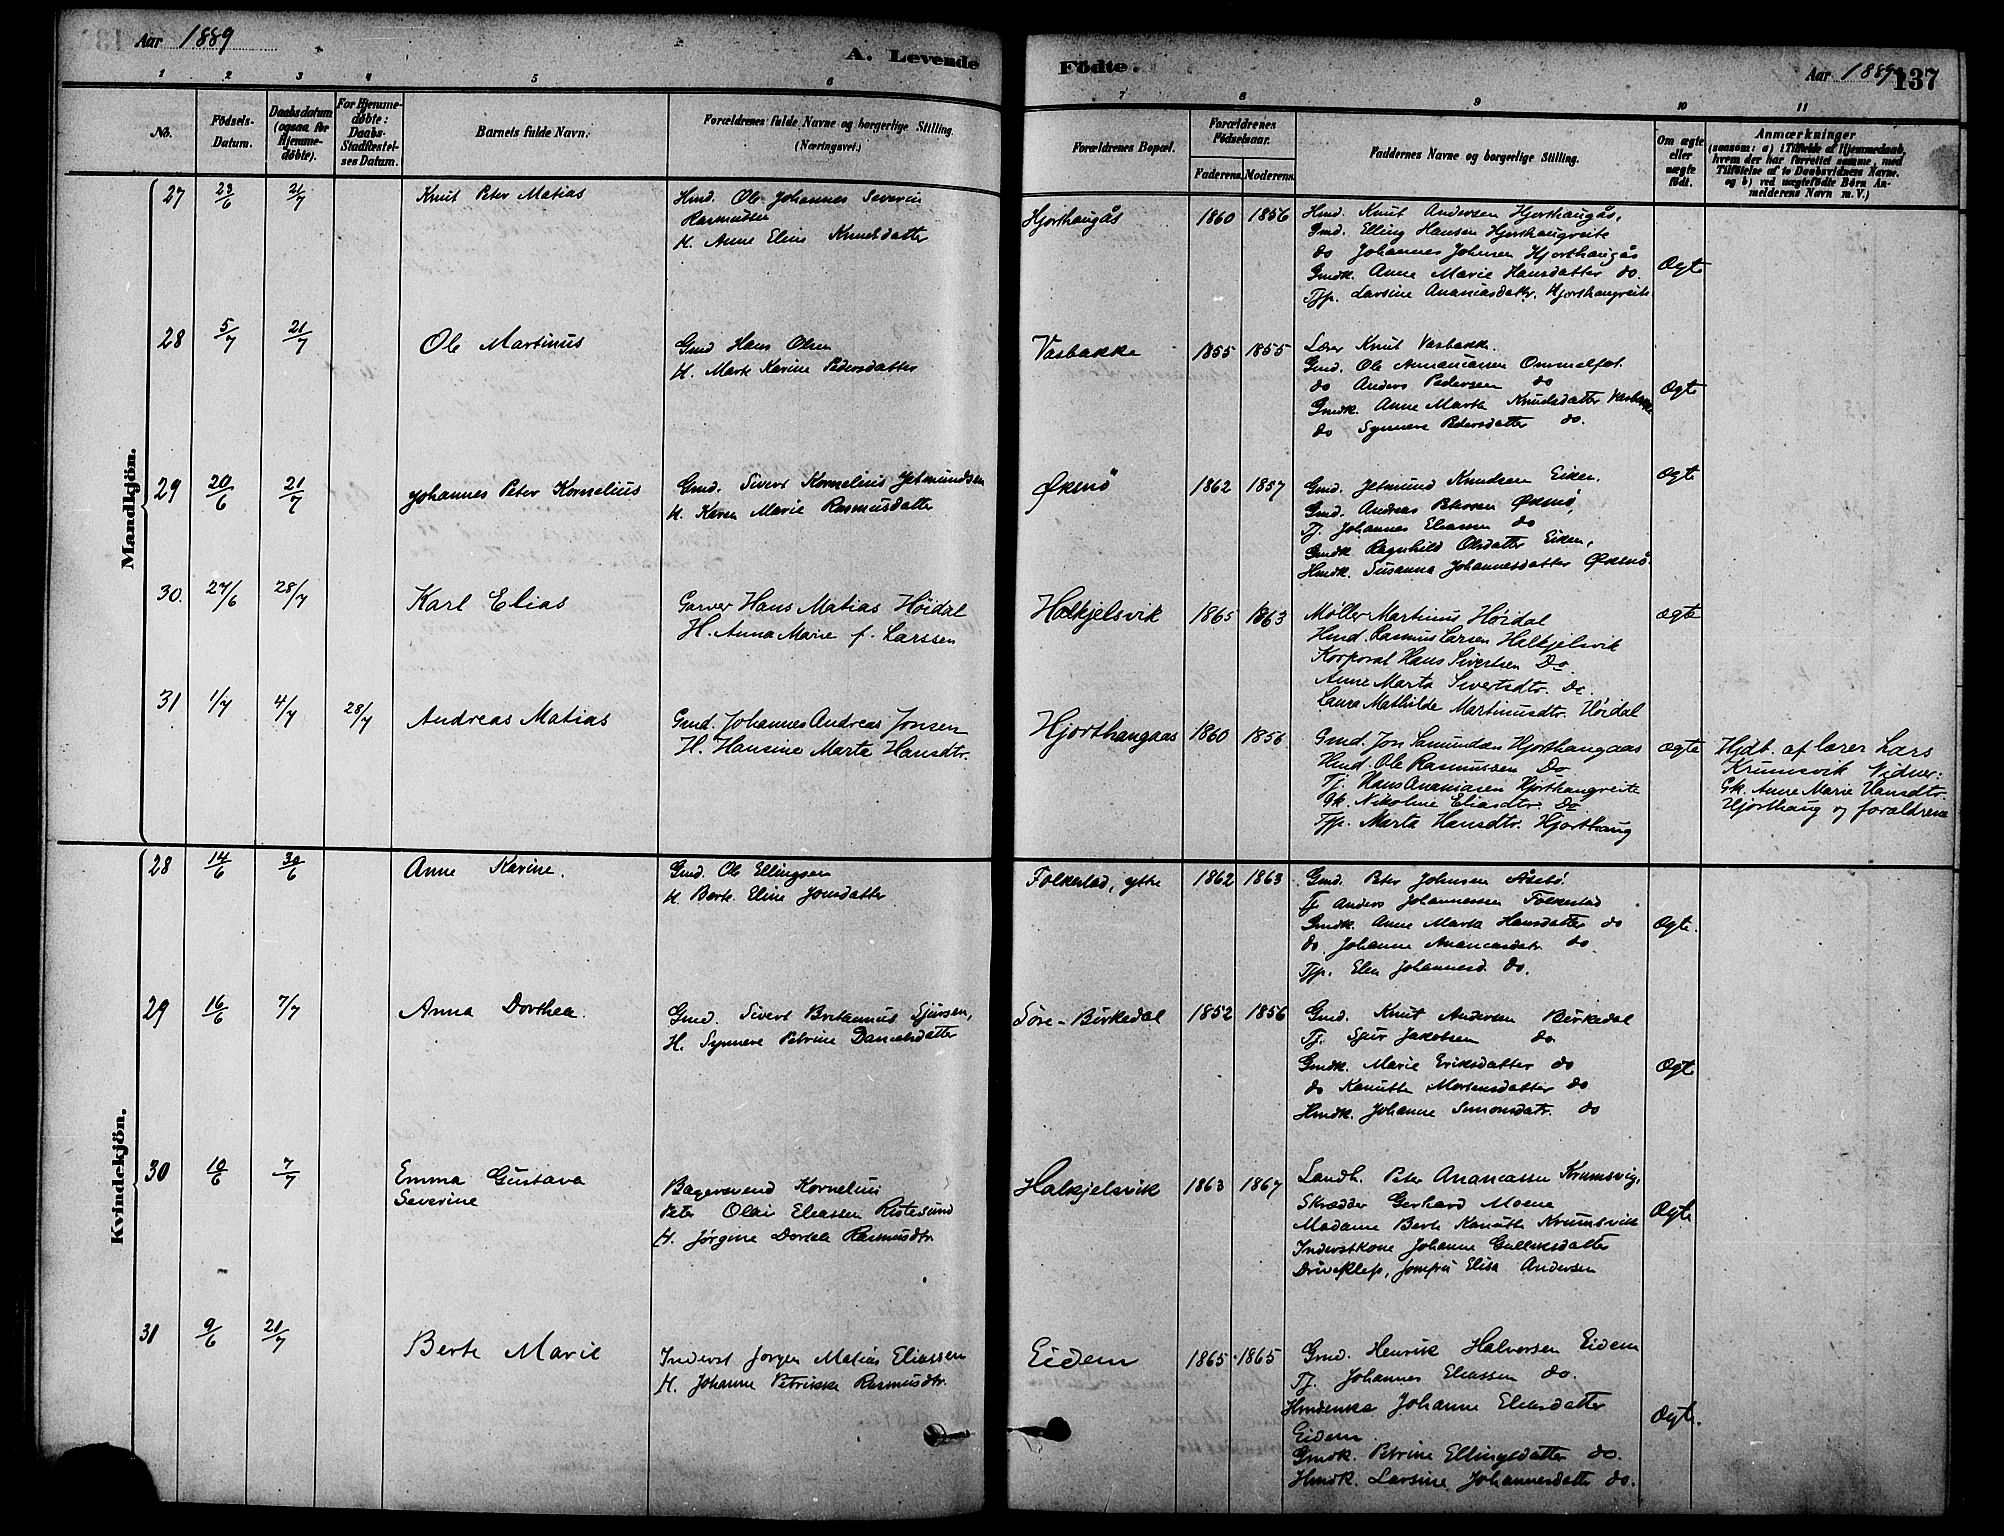 Aar 1889
A. Levende Födte.
Aar 1889
137
1 2 3 4 5 6 7 8 9 10 11
No.
Födsels-Datum.
Daabsdatum (ogsaa for Hjemme-döbte).
For Hjemme-döbte: Daabs-Stadfæstel-ses Datum.
Barnets fulde Navn.
Forældrenes fulde Navne og borgerlige Stilling.
(Næringsvei.)
Forældrenes Bopæl.
Forældrenes Födselsaar.
Faderens. Moderens.
Faddernes Navne og borgerlige Stilling.
Om ægte eller uægte født.
Anmærkninger
(saasom: a) i Tilfælde af Hjemmedaab, hvem der har forrettet samme, med Tilföielse af to Daabsvidners Navne, og b) ved uægtefödte Börn An-melderens Navn m. V.)
Mandkjön.
27 23/6 21/7 Knut Peter Matias
Hmd. Ole Johannes Severin
Rasmussen
H. Anne Eline Knudsdatter
Hjorthaugås 1860 1856
Hmd. Knut Andersen Hjorthaugås,
Gmd. Elling Hansen Hjorthaugreite
do Johannes Johnsen Hjorthaugås
Gmdk. Anne Marie Hansdatter do.
Tjp. Larsine Ananiasdatr. Hjorthaugreite
Ægte
28 5/7 21/7 Ole Martinus
Gmd Hans Olsen
H. Marte Karine Pedersdatter
Vasbakke 1855 1855
Lærer Knut Vasbakke.
Gmd. Ole Annaniassen Ommelfot.
do Anders Pedersen do
Gmdk. Anne Marte Knudsdatter Vasbakke
do Synneve Pedersdatter do.
Ægte
29 20/6 21/7 Johannes Peter Kornelius
Gmd. Sivert Kornelius Jetmundsen
H. Karen Marie Rasmusdatter
Øksnø 1862 1857
Gmd. Jetmund Knudsen Eiken.
Gmd. Andreas Petersen Øksnø,
Tj. Johannes Eliassen do
Gmdk. Ragnhild Olsdatter Eiken,
Hmdk. Susanna Johannesdatter Øksnø.
Ægte
30. 27/6 28/7 Karl Elias
Garver Hans Matias Höidal
H. Anna Marie f. Larssen
Halkjelsvik 1865 1863
Møller Martinus Höidal
Hmd. Rasmus Larsen Halkjelsvik
Korporal Hans Sivertsen Do
Anne Marta Sivertsdtr. Do
Laura Mathilde Martinusdtr. Höidal
ægte
31 1/7 4/7 28/7 Andreas Matias
Gmd. Johannes Andreas Jonsen
H. Hansine Marte Hansdtr.
Hjorthaugaas 1860 1856
Gmd. Jon Samundsen Hjorthaugaas
Hmd. Ole Rasmussen Do
Tj. Hans Ananiasen Hjorthaugreite
Gk. Nikoline Eliasdtr. Do.
Tjp. Marta Hansdtr. Hjorthaug
ægte
Hjdb. af lærer Lars
Krumsvik Vidner:
Gk. Anne Marie Hansdtr.
Hjorthaug og forældrene
Kvindekjön.
28 14/6 30/6 Anne Karine.
Gmd. Ole Ellingsen
H Berte Eline Jonsdatter
Folkestad, ytre 1862 1863
Gmd. Peter Johnsen Åsebø.
Tj Anders Johannessen Folkestad
Gmdk. Anne Marte Hansdatter do
do. Johanne Ananiasdatr. do
Tjp. Elen Johannesd. do.
Ægte.
29 16/6 7/7 Anna Dorthea.
Gmd. Sivert Britannus Sjursen,
H. Synneve Petrine Danielsdatter
Søre-Birkedal 1852 1856
Gmd. Knut Andersen Birkedal
Tj. Sjur Jakobsen do
Gmdk. Marie Eriksdatter do
do Kanutte Mortensdatter do
Hmdk. Johanne Simonsdatr. do
Ægte
30 10/6 7/7 Emma Gustava
Severine
Bagersvend Kornelius
Peter Olai Eliassen Ristesund
H. Jørgine Dortea Rasmusdtr.
Halkjelsvik 1863 1867
Landh. Peter Ananiassen Krumsvig,
Skrædder Gerhard Moene
Madame Berte Kanutte Krumsvik
Inderstkone Johanne Gulleiksdatter
Driveklep, Jomfru Elisa Andersen
Ægte
31 9/6 21/7 Berte Marie
Inderst Jørgen Matias Eliassen
H. Johanne Petrikke Rasmusdtr.
Eidem 1865 1865
Gmd. Henrik Halvorsen Eidem
Tj. Johannes Eliassen do.
Hmdenka Johanne Eliasdatter
Eidem.
Gmdk. Petrine Ellingsdatter do.
Hmdk. Larsine Johannesdatter do.
Ægte.